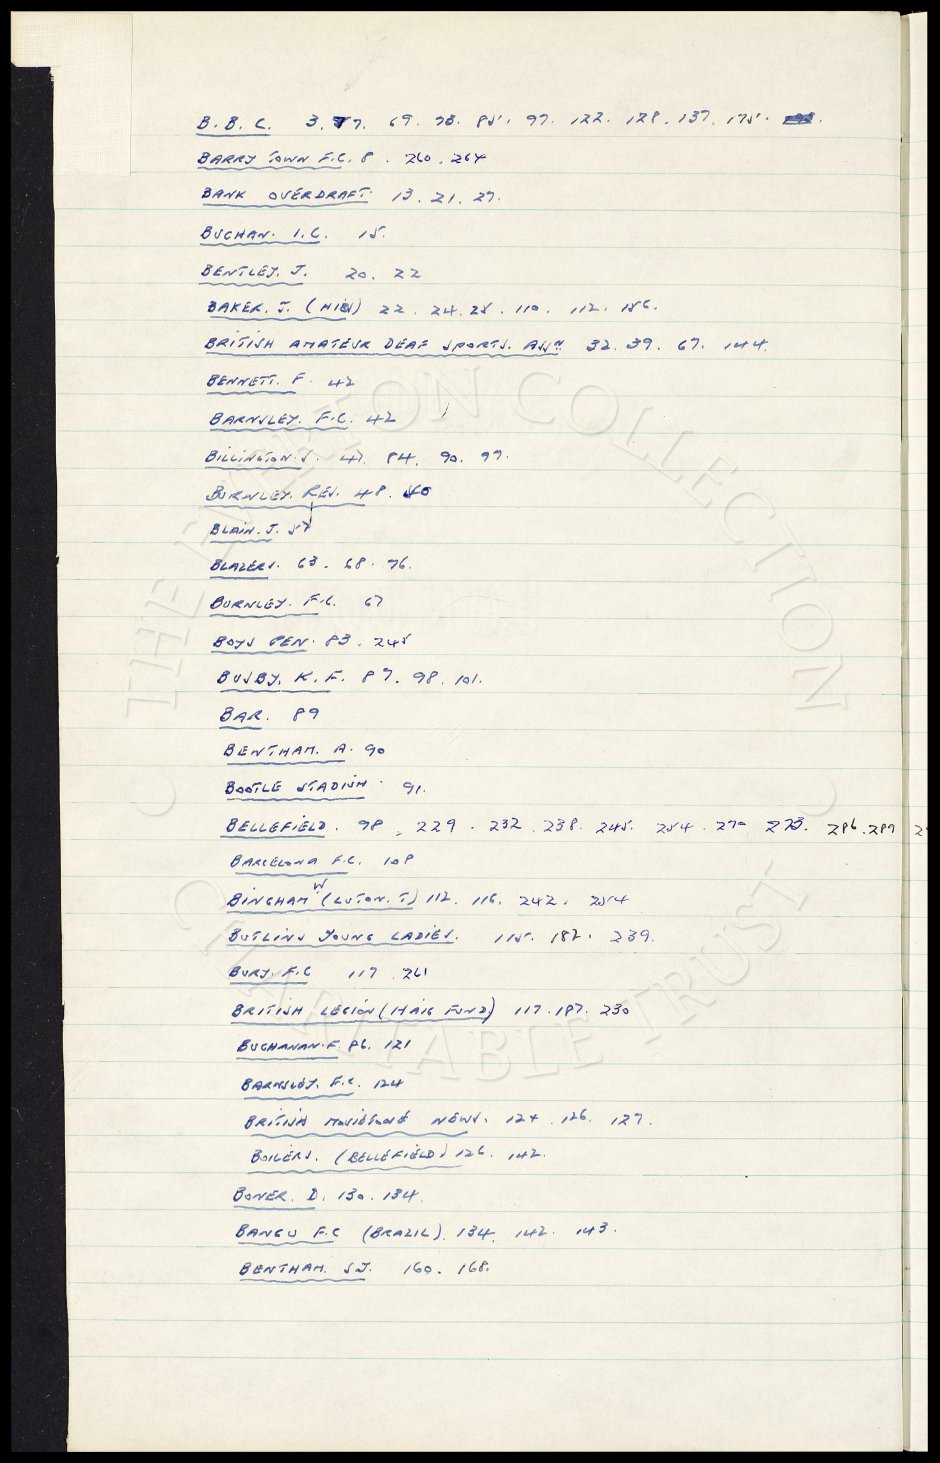 B. B. C. 3. 7. 69. 78. 85. 97. 122. 128. 137. 175.
BARRY TOWN F.C. 8. 260. 264
BANK OVERDRAFT. 13. 21. 27.
BUCHAN. I.C. 15.
BENTLEY. J. 20. 22
BAKER. J. (HIBS) 22. 24. 25. 110. 112. 156.
BRITISH AMATEUR DEAF SPORTS. ASSN 32. 39. 67. 144.
BENNETT. F. 42
BARNSLEY. F.C. 42
BILLINGTON. S. 47. 84. 90. 97.
BURNLEY. RES. 48. 50
BLAIN. J. 57
BLAZERS. 63. 68. 76.
BURNLEY. F.C. 67
BOYS PEN. 83. 245
BUSBY. K. F. 87. 98. 101.
BAR. 89
BENTHAM. A. 90
BOOTLE STADIUM. 91.
BELLEFIELD. 98. 229. 232. 238. 245. 254. 270 273. 286. 289
BARCELONA F.C. 108
BINGHAM W (LUTON. T) 112. 116. 242. 254
BUTLINS YOUNG LADIES. 115. 182. 239.
BURY. F.C 117. 261
BRITISH LEGION (HAIG FUND) 117. 187. 230
BUCHANAN. F. 86. 121
BARNSLEY. F.C. 124
BRITISH MOVIETONE NEWS. 124. 126. 127.
BOILERS. (BELLEFIELD) 126. 142.
BONER. D. 130. 134.
BANGU F.C (BRAZIL). 134. 142. 143.
BENTHAM. S.J. 160. 168.
THE EVERTON COLLECTION
CHARITABLE TRUST